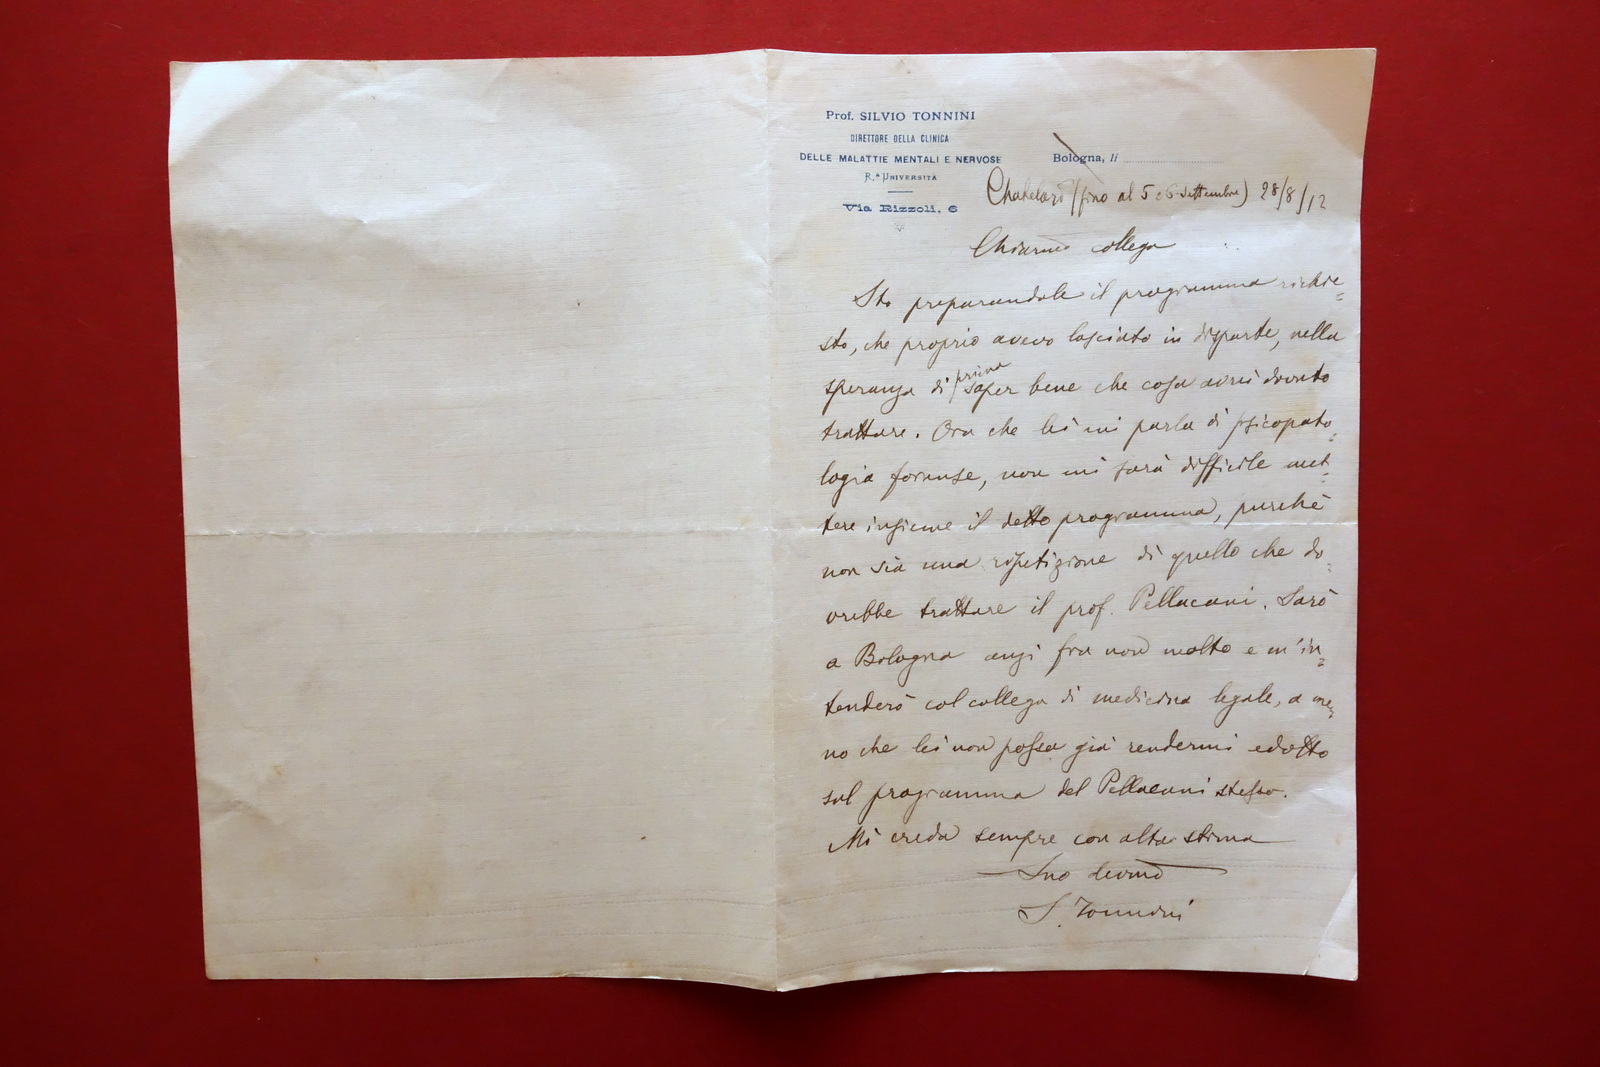 Prof. SILVIO TONNINI
DIRETTORE DELLA CLINICA
DELLE MALATTIE MENTALI E NERVOSE
R.ª UNIVERSITÀ
Via Rizzoli, 6
Bologna, lì
(fino al 5 o 6 settembre) 28/8/12
Chiarmo collega
Sto preparandole il programma richie=
sto, che proprio avevo lasciato in disparte, nella
speranza di prima saper bene che cosa avrei dovuto
trattare. Ora che lei mi parla di psicopato=
logia forense, non mi sarà difficile met=
tere insieme il detto programma, purchè
non sia una ripetizione di quello che do=
vrebbe trattare il prof. Pellacani. Sarò
a Bologna anzi fra non molto e m'in=
tenderò col collega di medicina legale, a me=
no che lei non possa già rendermi edotto
sul programma del Pellacani stesso.
Mi creda sempre con alta stima
Suo devmo
S. Tonnini